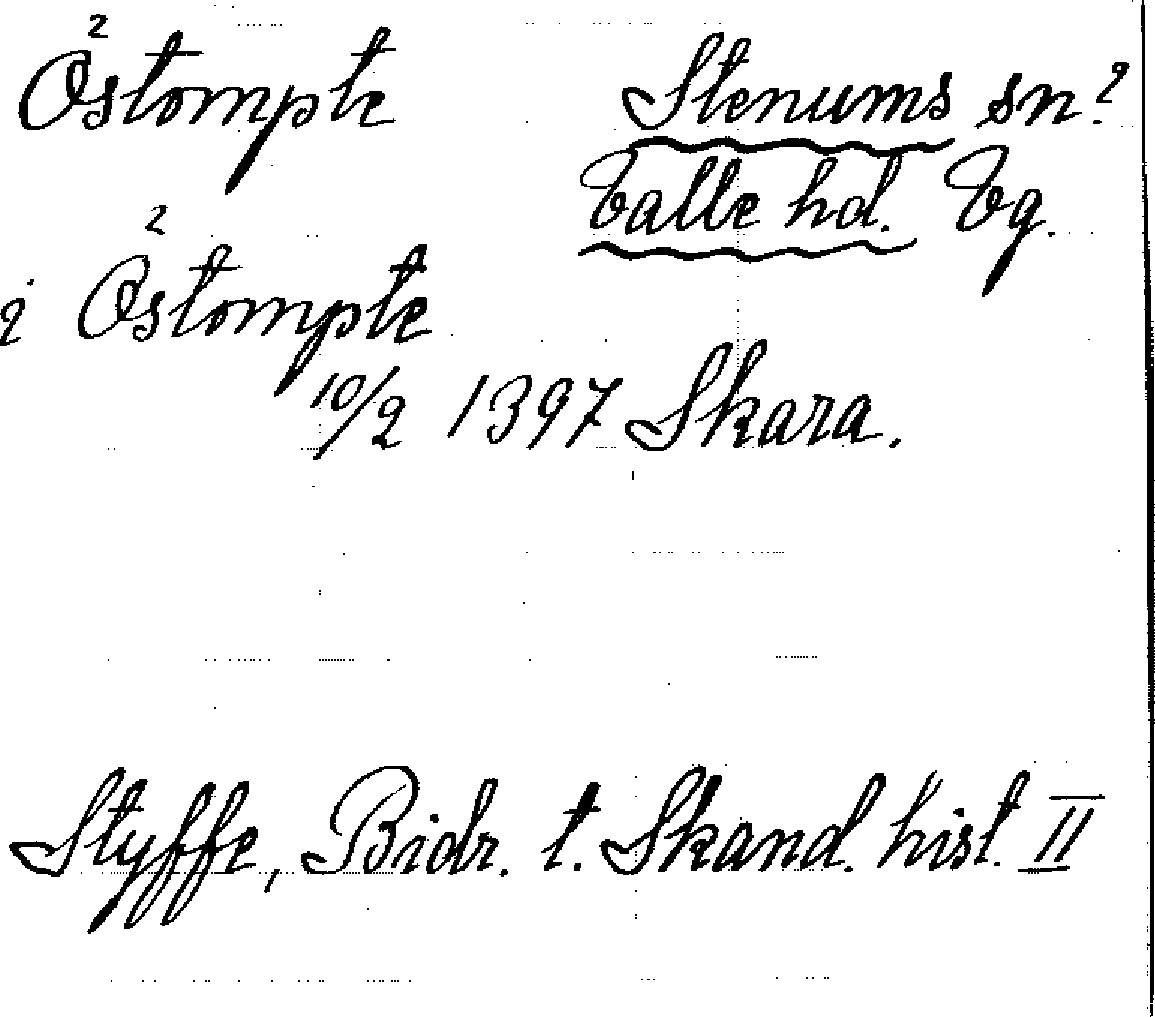 Östompte Stenums sn?
Valle hd. Vg.
i Östompte
10/2 1397 Skara.
Styffe, Bidr. t. Skand. hist. II